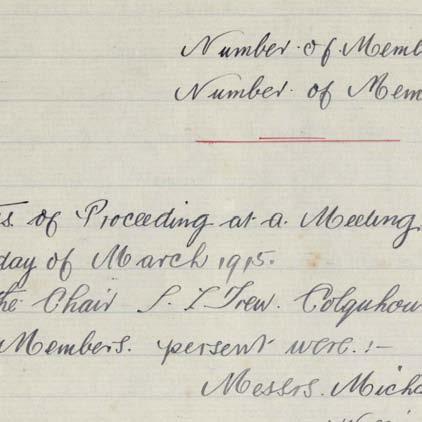 Number of Memb
Number of Mem
s. of Proceeding at a Meeting
day of March 1915.
the Chair S. I. Trew. Colquhou
Members. persent were. :-
Messrs. Micha